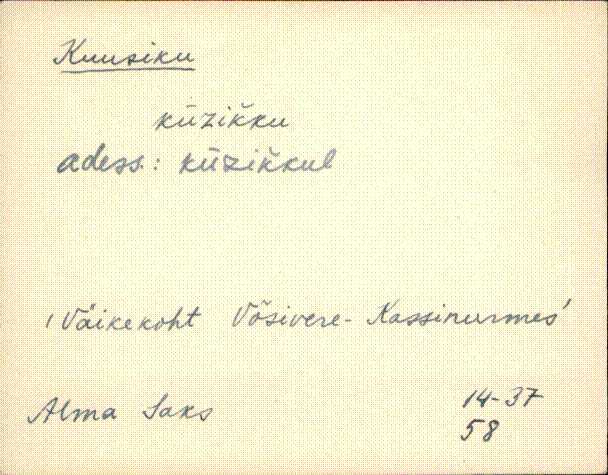 Kuusiku
kūzikku
adess.: kūzikkul
'Väikekoht Võsivere-Kassinurmes'
Alma Saks 14-37
58